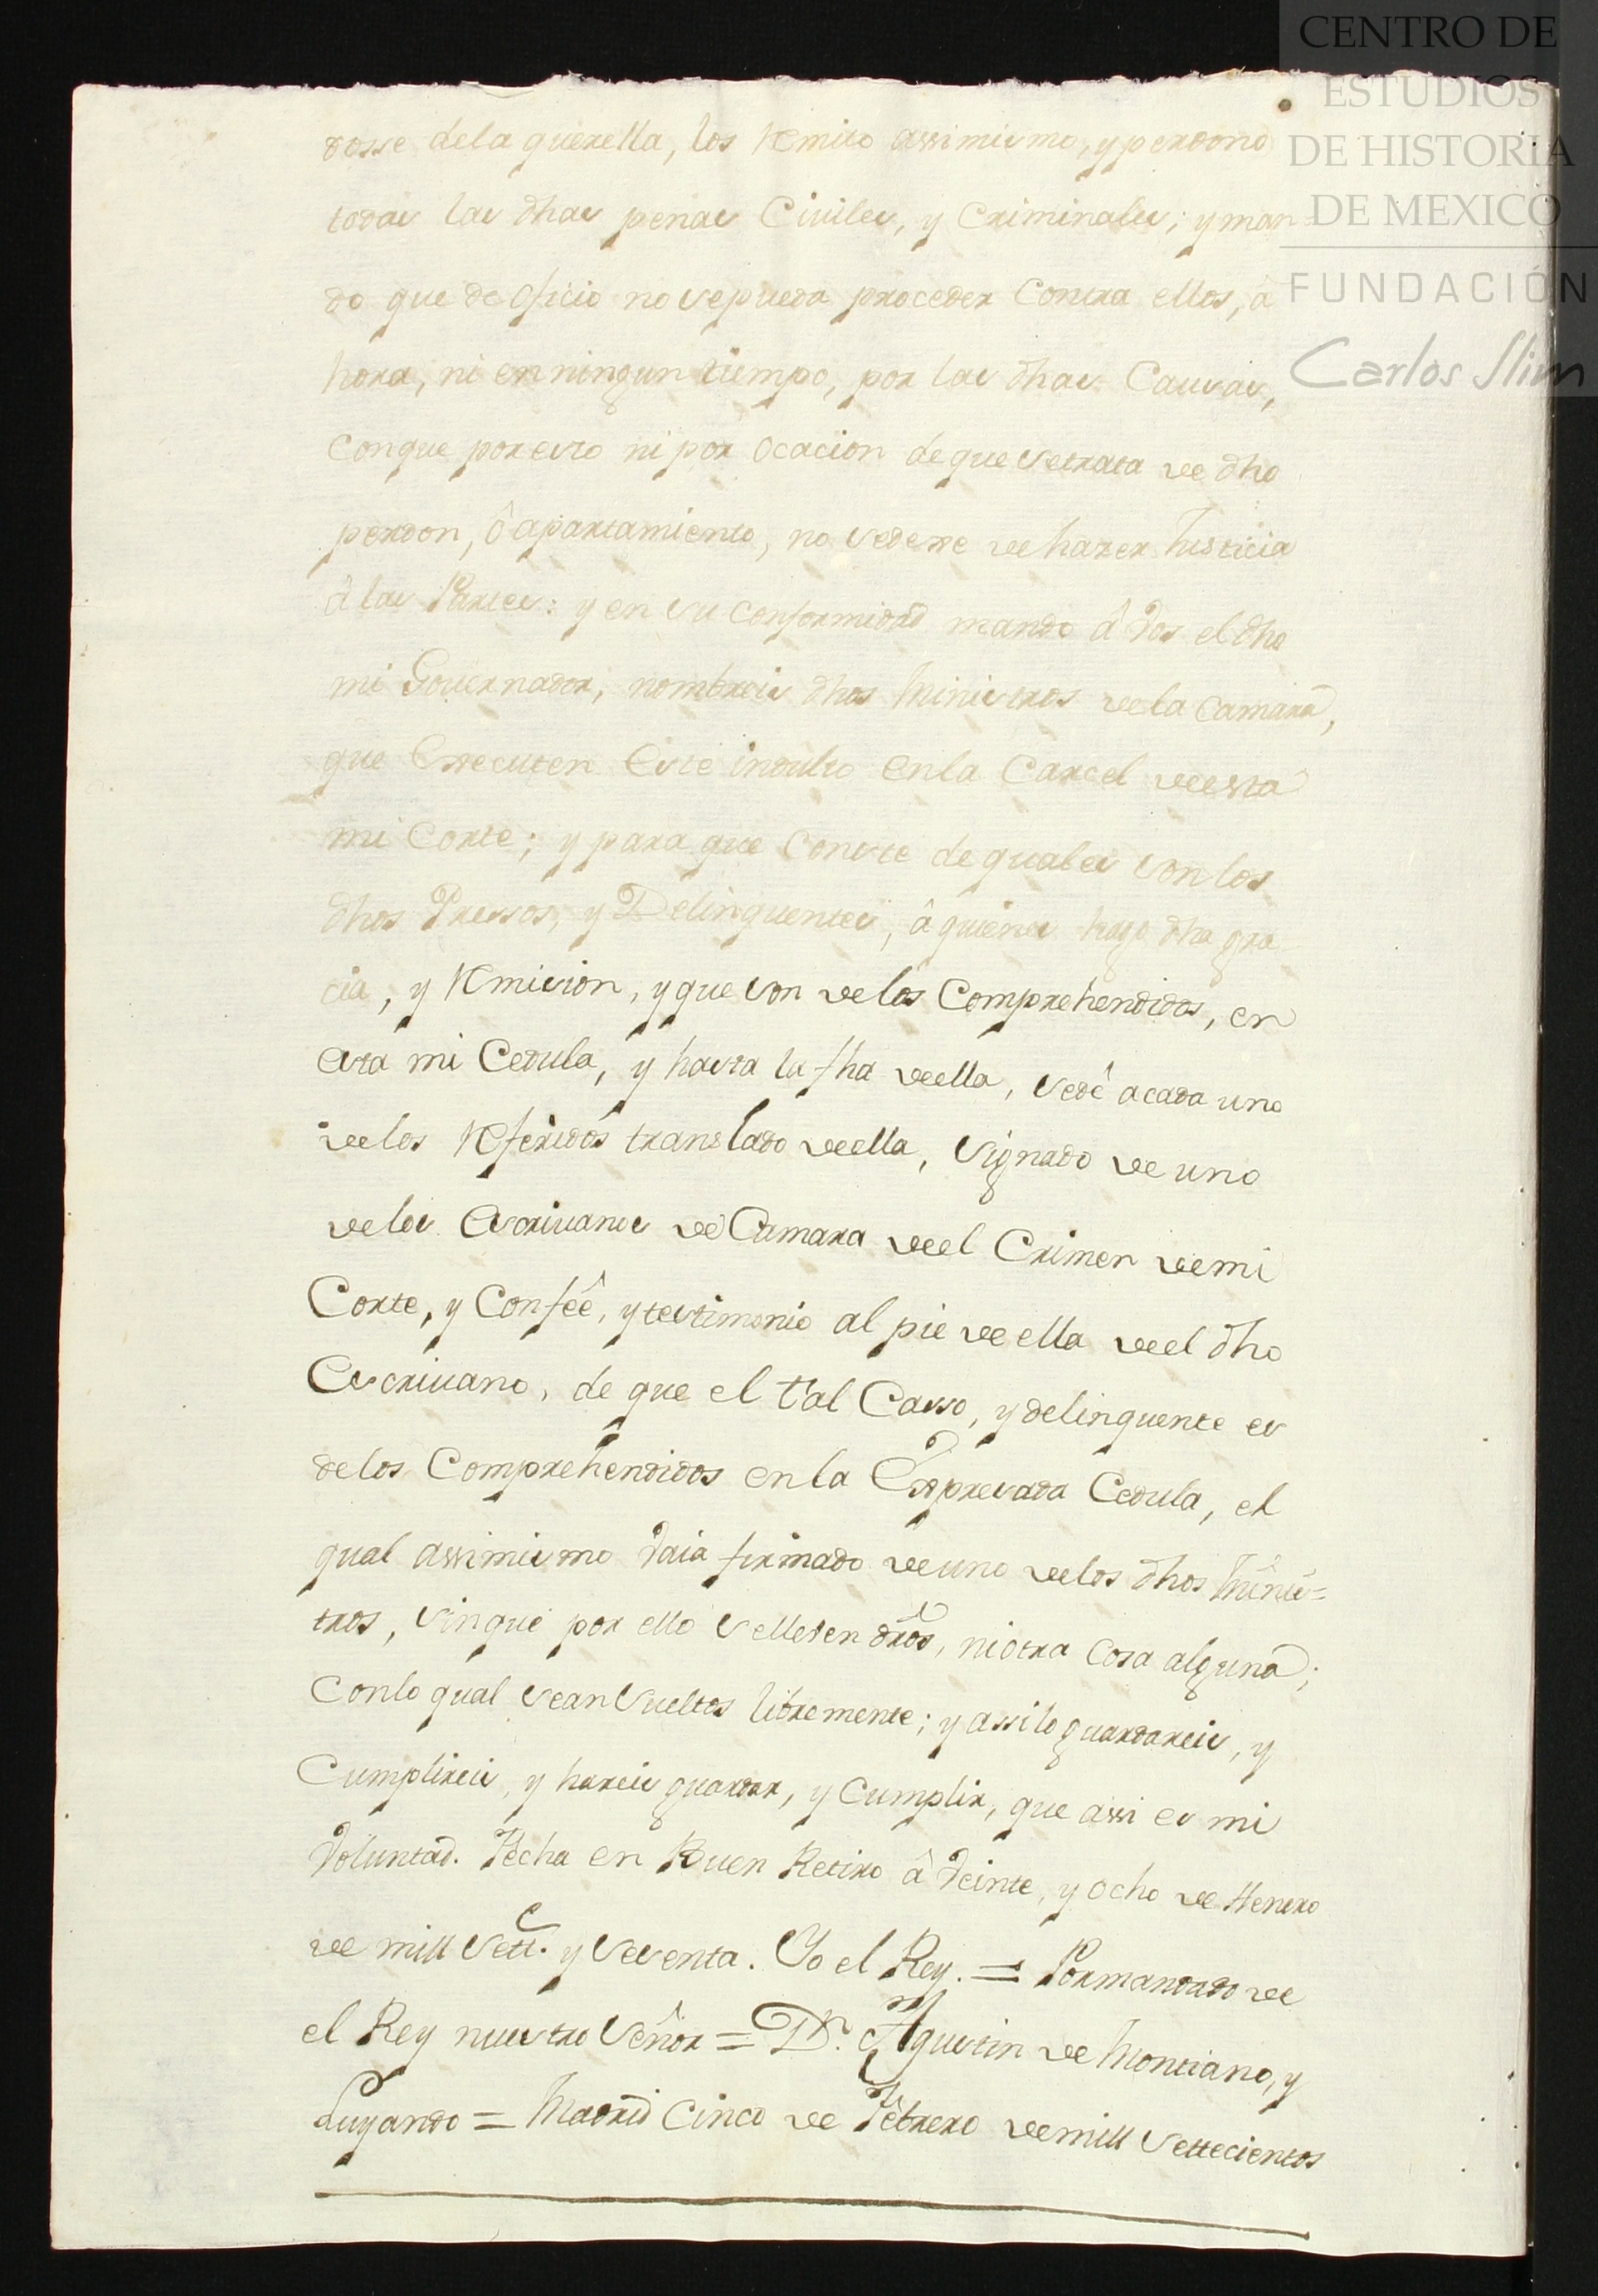 CENTRO DE
ESTUDIOS
DE HISTORIA
DE MEXICO
FUNDACIÓN
Carlos Slim
dosse dela querella, los Remito assimismo, y perdono
todas las dhas penas Civiles, y Criminales; y man
do que de oficio no sepueda proceder Contra ellos, a
hora, ni enningun tiempo, por las dhas Causas,
Conque poresto ni por Ocacion deque setrata de dho
perdon, ô apartamiento, no sedexe de hazer Justicia
â las Partes: y en su conformidad mando â Vos el dho
mi Governador, nombreis dhos Ministros dela Camara,
que Executen Este indulto Enla Carcel deesta
mi Corte; y para que Conste de quales son los
dhos Pressos, y Delinquentes, â quienes hago dha gra
cia, y Remision, y que son delos Comprehendidos, en
Esta mi Cedula, y hasta la fha deella, sedê acada uno
delos Referidos translado deella, signado de uno
delos Escrivanos de Camara deel Crimen demi
Corte, y Confeê, y testimonio al pie de ella deel dho
Escrivano, de que el tal Casso, y delinquente es
delos Comprehendidos en la Expresada Cedula, el
qual assimismo vaia firmado de uno delos dhos Minis=
tros, sinque por ello selleven dros, niotra Cosa alguna;
Conlo qual sean sueltos libremente; y assilo guardareis, y
Cumplireis, y hareis guardar, y Cumplir, que assi es mi
Voluntad. Fecha en Buen Retiro â Veinte, y ocho de Henero
de mill sett.s y sesenta. Yo el Rey. = Pormandado de
el Rey nuestro Señor = Dn. Agustin de Montiano, y
Luyando = Madrid Cinco de Febrero demill settecientos